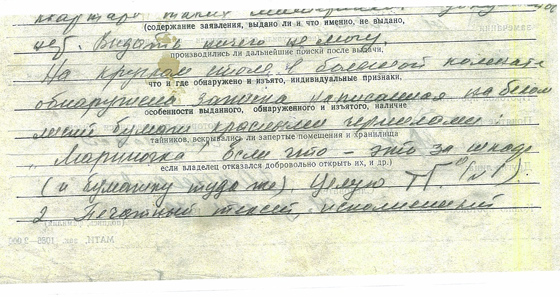 (содержание заявления, выдано ли и что именно, не выдано,
нет. Выдать ничего не могу
производились ли дальнейшие поиски после выдачи,
На круглом столе в большой комнате
что и где обнаружено и изъято, индивидуальные признаки,
обнаружена записка, написанная на белом
особенности выданного, обнаруженного и изъятого, наличие
листе бумаги красными чернилами:
тайников, вскрывались ли запертые помещения и хранилища
„Мариночка, если что – это за шкаф
если владелец отказался добровольно открыть их, и др.)
(и бумажку туда же). Целую
2 Печатный текст, исполненный